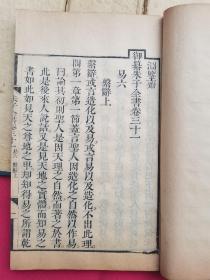 淵鑒齋
御纂朱子全書卷三十一
易六
繫辭上
繫辭或言造化以及易或言易以及造化不出此理
問第一章第一節蓋言聖人因造化之自然以作易
曰論其初則聖人是因天理之自然而著之於書
此是後來人說話又是見天地之實體而知易之
書如此如見天之尊地之卑却知得易之所謂乾